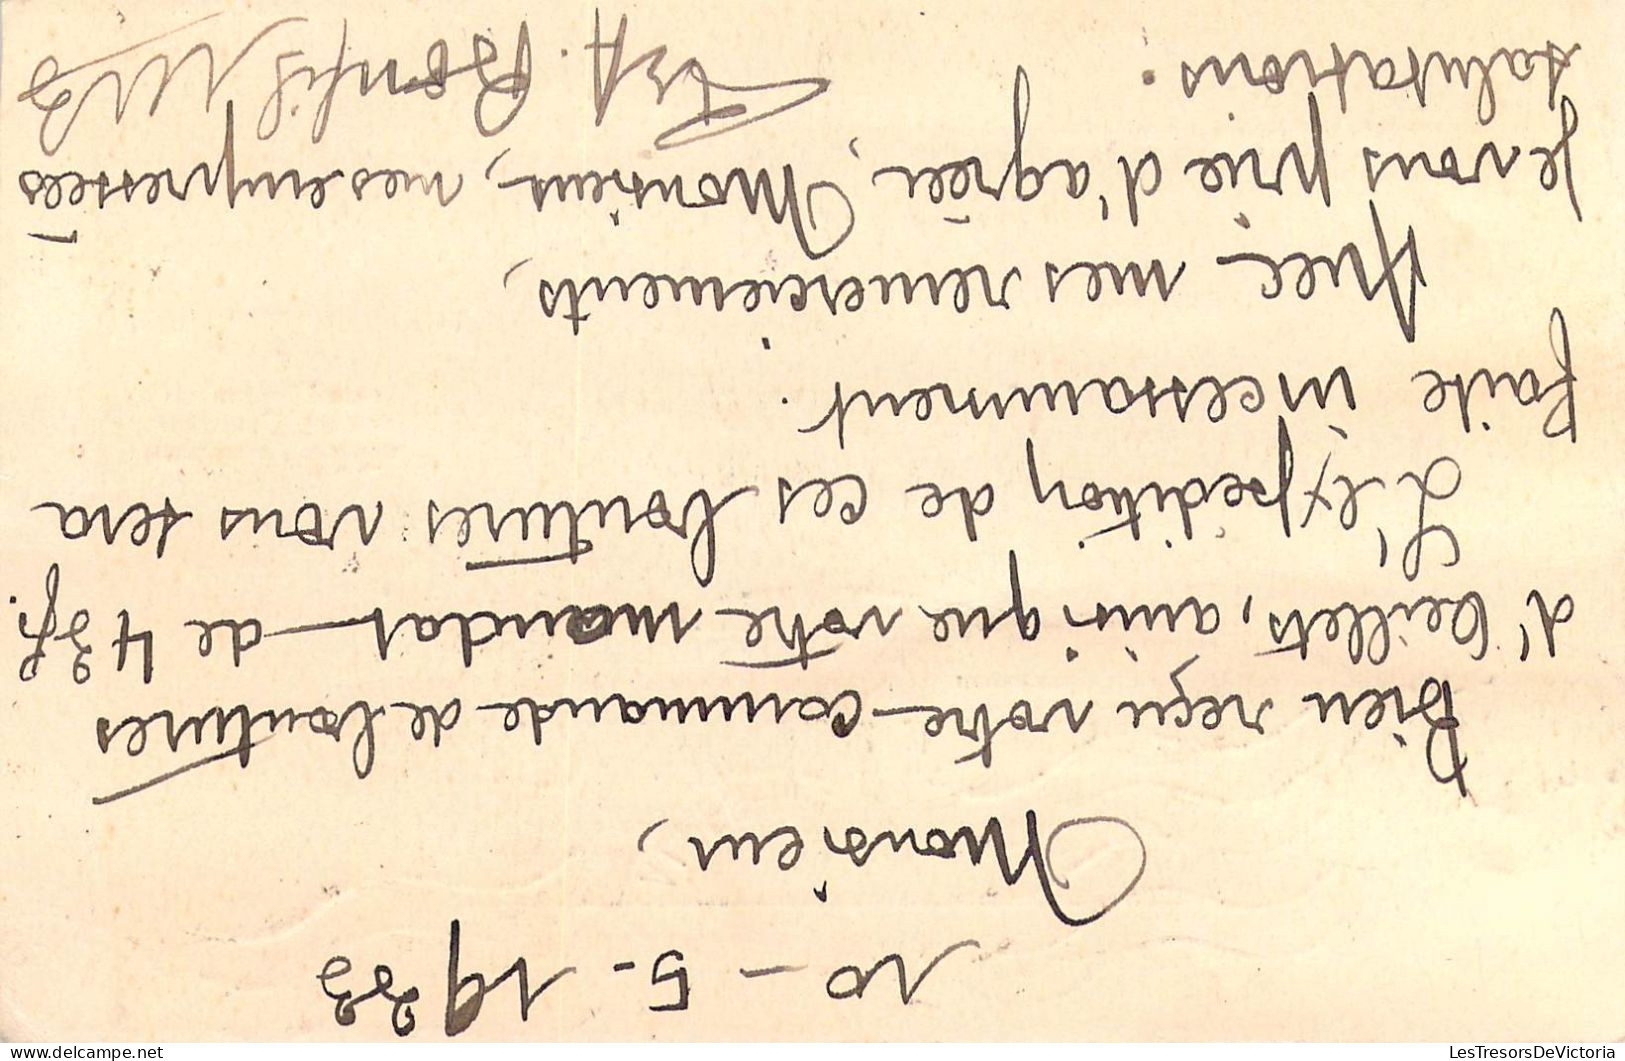 10 - 5 - 1933
Monsieur,
Bien reçu votre commande de boutures
d'Œillets, ainsi que votre mandat de 43 f.
L'expédition de ces boutures vous sera
faite incessamment.
Avec mes remerciements,
Je vous prie d'agréer, Monsieur, mes empressées
salutations.
Bonfils
LesTresorsDeVictoria